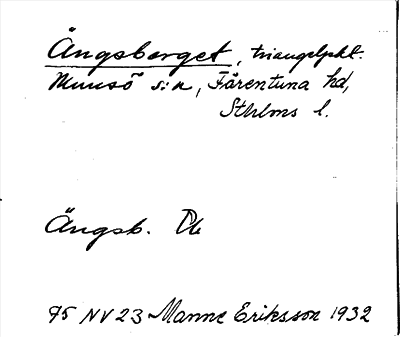 Ängsberget, triangelpkt.
Munsö s:n, Färentuna hd,
Sthlms l.
Ängsb.
95 NV 23 Manne Eriksson 1932